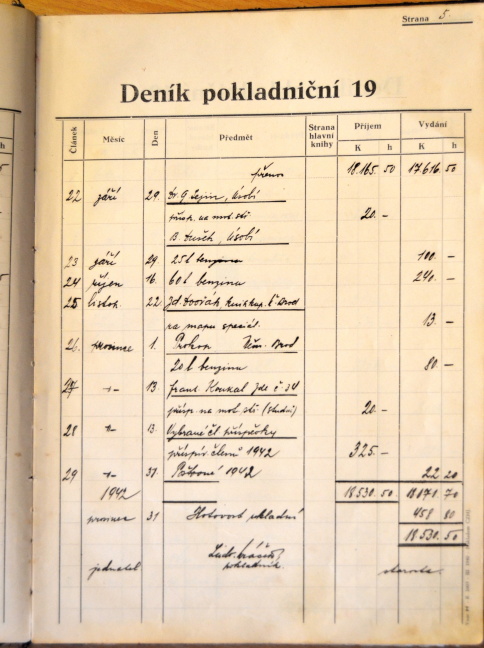 Strana 5.
Deník pokladniční 19
Článek Měsíc Den Předmět Strana hlavní knihy Příjem Vydání
K h K h
přenos 18.165. 50 17.616. 50
22 září 29.
20. -
B. Úsobí
23 září 29 25 l benzinu 100. -
24 říjen 16. 60 l benzinu 240. -
25 listop. 22. Jd. Dvořák, Brod
na mapu speciál. 13. -
26. prosinec 1. Prokop Něm. Brod
20 l benzinu 80. -
27 -"- 13 Frant. Koukal
přísp. na mot. stř. 20. -
28 -"- 13. Vybrané čl. příspěvky
příspěv. členů 1942 325. -
29 -"- 31 Poštovné 1942 22 20
1942 18.530. 50 18.071. 70
prosinec 31 Hotovost pokladní 458 80
18.530. 50
jednatel pokladník. starosta.